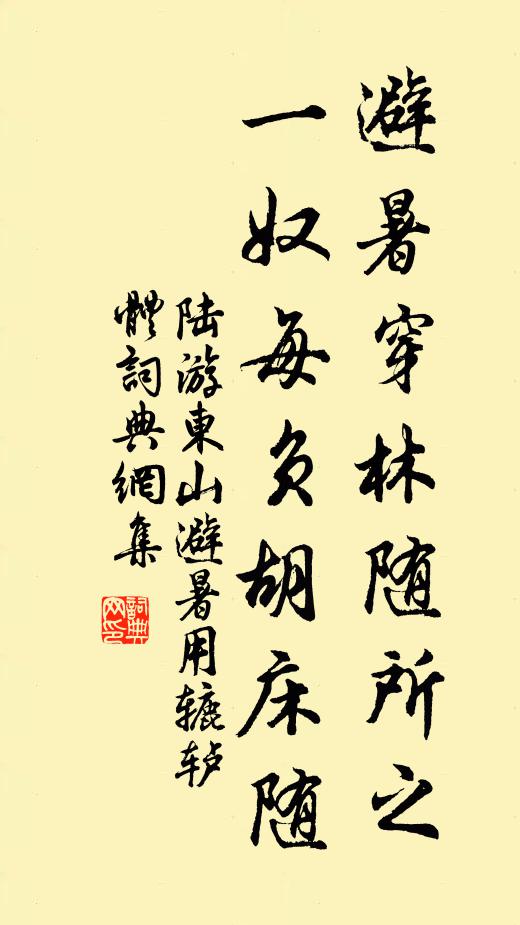 避暑穿林随所之
一奴每负胡床随
陆游東山避暑用辘轳
體詞典網集
詞典
网印